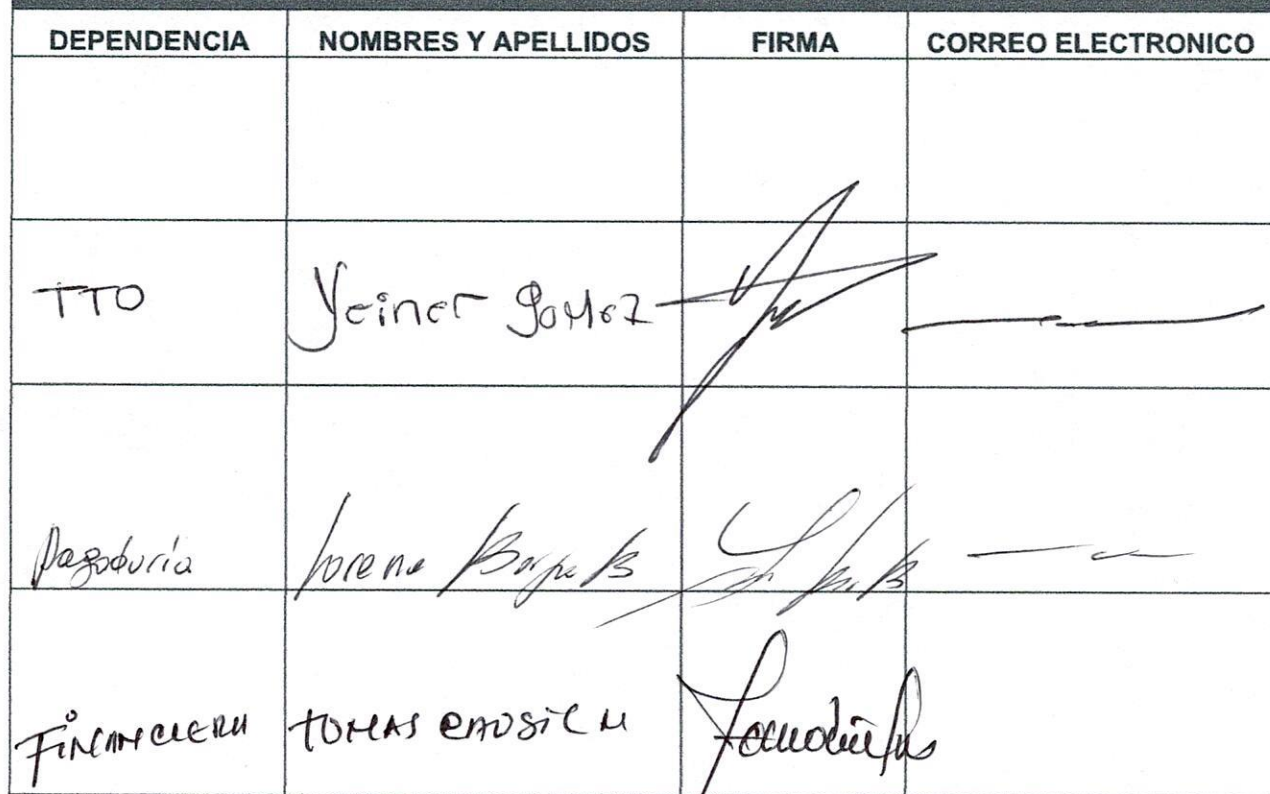 DEPENDENCIA NOMBRES Y APELLIDOS FIRMA CORREO ELECTRONICO
TTO Yeiner Gomez
Pagaduría Lorena
Financiera TOMAS CAUSIL M